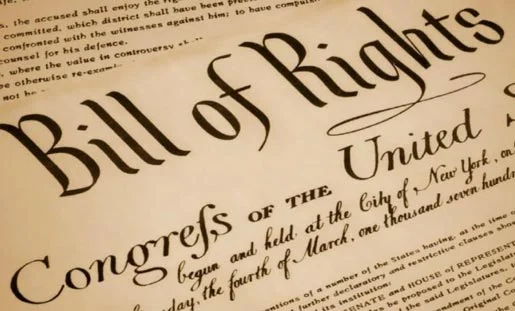 the accused shall enjoy the
committed, which district shall have been
confronted with the witnesses against him; to have
counsel for his defence.
where the value in controversy
otherwise re-exam
not be
Bill of Rights
Congreſs OF THE United
begun and held at the City of New York, on
day, the fourth of March, one thousand seven hund
entions of a number of the States having, at the time o
further declaratory and restrictive clauses shou
its institution:
ENATE and HOUSE of REPRESENT
be proposed to the Legislatu
the said Legislatures,
endment of the Co
riginal Co